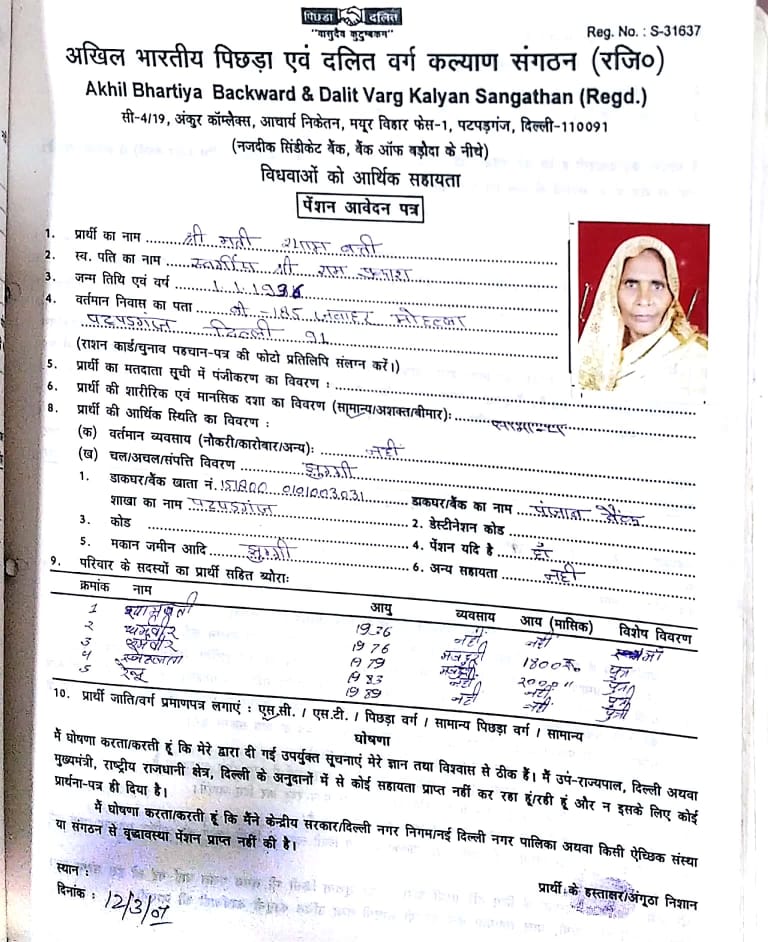 पिछड़ा दलित
"वासुदेव कुटुम्बकम"
Reg. No. : S-31637
अखिल भारतीय पिछड़ा एवं दलित वर्ग कल्याण संगठन (रजि०)
Akhil Bhartiya Backward & Dalit Varg Kalyan Sangathan (Regd.)
सी-4/19, अंकुर कॉम्लैक्स, आचार्य निकेतन, मयूर विहार फेस-1, पटपड़गंज, दिल्ली-110091
(नजदीक सिंडीकेट बैंक, बैंक ऑफ बड़ौदा के नीचे)
विधवाओं को आर्थिक सहायता
पेंशन आवेदन पत्र
1. प्रार्थी का नाम श्री मती श्याम वती
2. स्व. पति का नाम स्वर्गीय श्री राम प्रकाश
3. जन्म तिथि एवं वर्ष 1.1.1936
4. वर्तमान निवास का पता -185 जवाहर मोहल्ला
पटपडगंज दिल्ली 91
(राशन कार्ड/चुनाव पहचान-पत्र की फोटो प्रतिलिपि संलग्न करें।)
5. प्रार्थी का मतदाता सूची में पंजीकरण का विवरण :
6. प्रार्थी की शारीरिक एवं मानसिक दशा का विवरण (सामान्य/अशक्त/बीमार): सामान्य
8. प्रार्थी की आर्थिक स्थिति का विवरण :
(क) वर्तमान व्यवसाय (नौकरी/कारोबार/अन्य): नहीं
(ख) चल/अचल/संपत्ति विवरण झुग्गी
1. डाकघर/बैंक खाता नं. 151800 0101003031 डाकघर/बैंक का नाम पंजाब बैंक
शाखा का नाम पटपडगंज 2. डेस्टीनेशन कोड
3. कोड 4. पेंशन यदि है हाँ
5. मकान जमीन आदि झुग्गी 6. अन्य सहायता नहीं
9. परिवार के सदस्यों का प्रार्थी सहित ब्योराः
क्रमांक नाम आयु व्यवसाय आय (मासिक) विशेष विवरण
1 श्यामवती 1936 नहीं नहीं
2 धर्मवीर 1976 मजदूरी 1800 रु पुत्र
3 1979 मजदूरी 2000 " पुत्र
4 1983 नहीं नहीं पुत्री
5 रेनू 1989 नहीं नहीं पुत्री
10. प्रार्थी जाति/वर्ग प्रमाणपत्र लगाएं : एस.सी. / एस.टी. / पिछड़ा वर्ग / सामान्य पिछड़ा वर्ग / सामान्य
घोषणा
मैं घोषणा करता/करती हूं कि मेरे द्वारा दी गई उपर्युक्त सूचनाएं मेरे ज्ञान तथा विश्वास से ठीक हैं। मैं उप-राज्यपाल, दिल्ली अथवा
मुख्यमंत्री, राष्ट्रीय राजधानी क्षेत्र, दिल्ली के अनुदानों में से कोई सहायता प्राप्त नहीं कर रहा हूं/रही हूं और न इसके लिए कोई
प्रार्थना-पत्र ही दिया है।
मैं घोषणा करता/करती हूं कि मैंने केन्द्रीय सरकार/दिल्ली नगर निगम/नई दिल्ली नगर पालिका अथवा किसी ऐच्छिक संस्था
या संगठन से वृद्धावस्था पेंशन प्राप्त नहीं की है।
स्थान :
प्रार्थी के हस्ताक्षर/अंगूठा निशान
दिनांक : 12/3/07